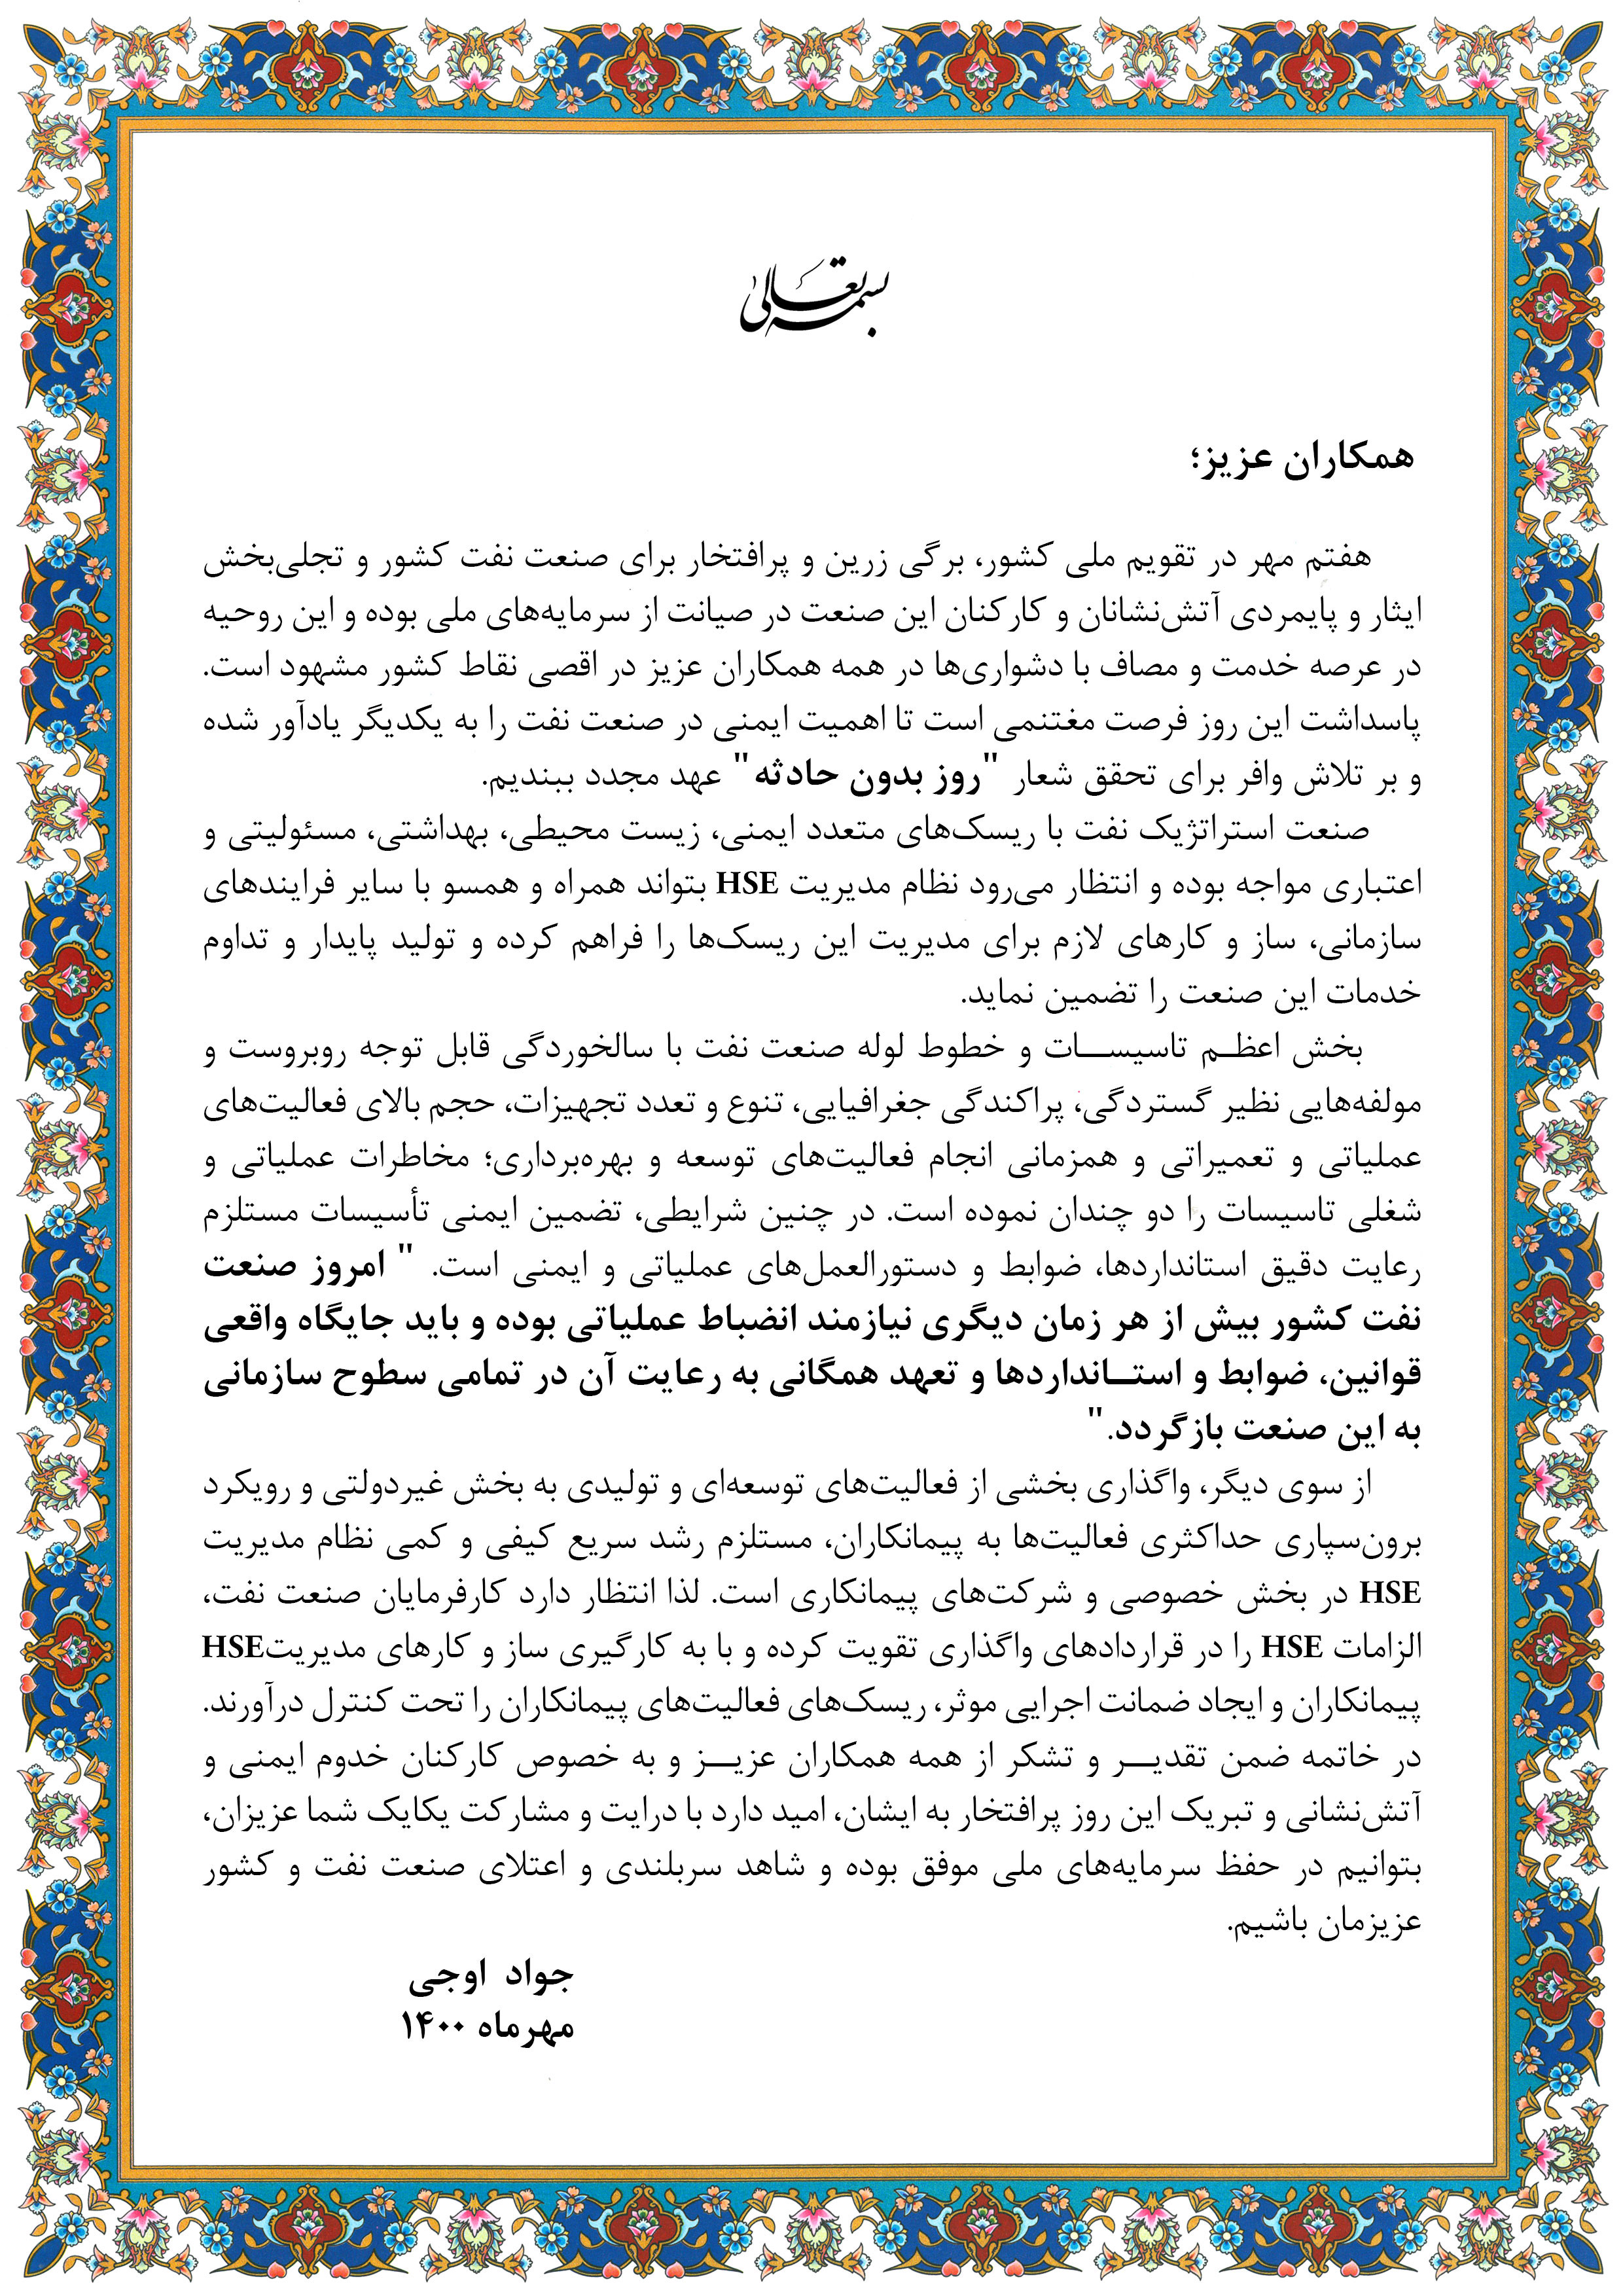 بسمه تعالی
همکاران عزیز؛
هفتم مهر در تقویم ملی کشور، برگی زرین و پرافتخار برای صنعت نفت کشور و تجلی‌بخش
ایثار و پایمردی آتش‌نشانان و کارکنان این صنعت در صیانت از سرمایه‌های ملی بوده و این روحیه
در عرصه خدمت و مصاف با دشواری‌ها در همه همکاران عزیز در اقصی نقاط کشور مشهود است.
پاسداشت این روز فرصت مغتنمی است تا اهمیت ایمنی در صنعت نفت را به یکدیگر یادآور شده
و بر تلاش وافر برای تحقق شعار "روز بدون حادثه" عهد مجدد ببندیم.
صنعت استراتژیک نفت با ریسک‌های متعدد ایمنی، زیست محیطی، بهداشتی، مسئولیتی و
اعتباری مواجه بوده و انتظار می‌رود نظام مدیریت HSE بتواند همراه و همسو با سایر فرایندهای
سازمانی، ساز و کارهای لازم برای مدیریت این ریسک‌ها را فراهم کرده و تولید پایدار و تداوم
خدمات این صنعت را تضمین نماید.
بخش اعظـم تاسیســات و خطوط لوله صنعت نفت با سالخوردگی قابل توجه روبروست و
مولفه‌هایی نظیر گستردگی، پراکندگی جغرافیایی، تنوع و تعدد تجهیزات، حجم بالای فعالیت‌های
عملیاتی و تعمیراتی و همزمانی انجام فعالیت‌های توسعه و بهره‌برداری؛ مخاطرات عملیاتی و
شغلی تاسیسات را دو چندان نموده است. در چنین شرایطی، تضمین ایمنی تأسیسات مستلزم
رعایت دقیق استانداردها، ضوابط و دستورالعمل‌های عملیاتی و ایمنی است. " امروز صنعت
نفت کشور بیش از هر زمان دیگری نیازمند انضباط عملیاتی بوده و باید جایگاه واقعی
قوانین، ضوابط و استــانداردها و تعهد همگانی به رعایت آن در تمامی سطوح سازمانی
به این صنعت بازگردد."
از سوی دیگر، واگذاری بخشی از فعالیت‌های توسعه‌ای و تولیدی به بخش غیردولتی و رویکرد
برون‌سپاری حداکثری فعالیت‌ها به پیمانکاران، مستلزم رشد سریع کیفی و کمی نظام مدیریت
HSE در بخش خصوصی و شرکت‌های پیمانکاری است. لذا انتظار دارد کارفرمایان صنعت نفت،
الزامات HSE را در قراردادهای واگذاری تقویت کرده و با به کارگیری ساز و کارهای مدیریتHSE
پیمانکاران و ایجاد ضمانت اجرایی موثر، ریسک‌های فعالیت‌های پیمانکاران را تحت کنترل درآورند.
در خاتمه ضمن تقدیــر و تشکر از همه همکاران عزیــز و به خصوص کارکنان خدوم ایمنی و
آتش‌نشانی و تبریک این روز پرافتخار به ایشان، امید دارد با درایت و مشارکت یکایک شما عزیزان،
بتوانیم در حفظ سرمایه‌های ملی موفق بوده و شاهد سربلندی و اعتلای صنعت نفت و کشور
عزیزمان باشیم.
جواد اوجی
مهرماه ۱۴۰۰